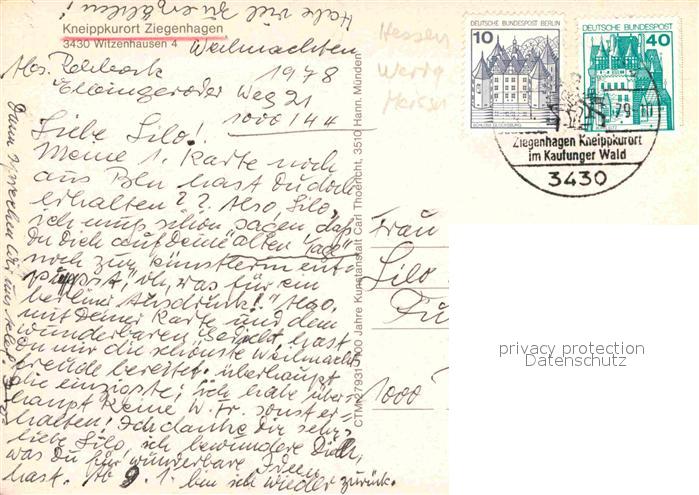 Habe viel zu erzählen!
Kneippkurort Ziegenhagen
3430 Witzenhausen 4
Weihnachten
1978
Weg 21
1000 / 44
Liebe Lilo!
Meine 1. Karte noch
aus Bln hast Du doch
erhalten?? Also, Lilo,
ich muß schon sagen, daß
Du Dich auf Deine "alten Tage"
noch zum
"oh, was für ein
berliner Ausdruck!" Also.
mit Deiner Karte und dem
wunderbaren Gedicht hast
Du mir die schönste Weihnachts
freude bereitet. überhaupt
die einzigste; ich habe über-
haupt keine W. Fr. sonst er-
halten! Ich danke Dir sehr,
liebe Lilo, ich bewundere Dich,
was Du für wunderbare Ideen
hast. Ab 9.1. bin ich wieder zurück.
Dann sprechen wir uns
Hessen
Werra
CTM 27931 100 Jahre Kunstanstalt Carl Thoericht, 3510 Hann. Münden
DEUTSCHE BUNDESPOST BERLIN
10
SCHLOSS GLÜCKSBURG
DEUTSCHE BUNDESPOST
40
79
Ziegenhagen Kneippkurort
im Kaufunger Wald
3430
Frau
Lilo
1000
privacy protection
Datenschutz